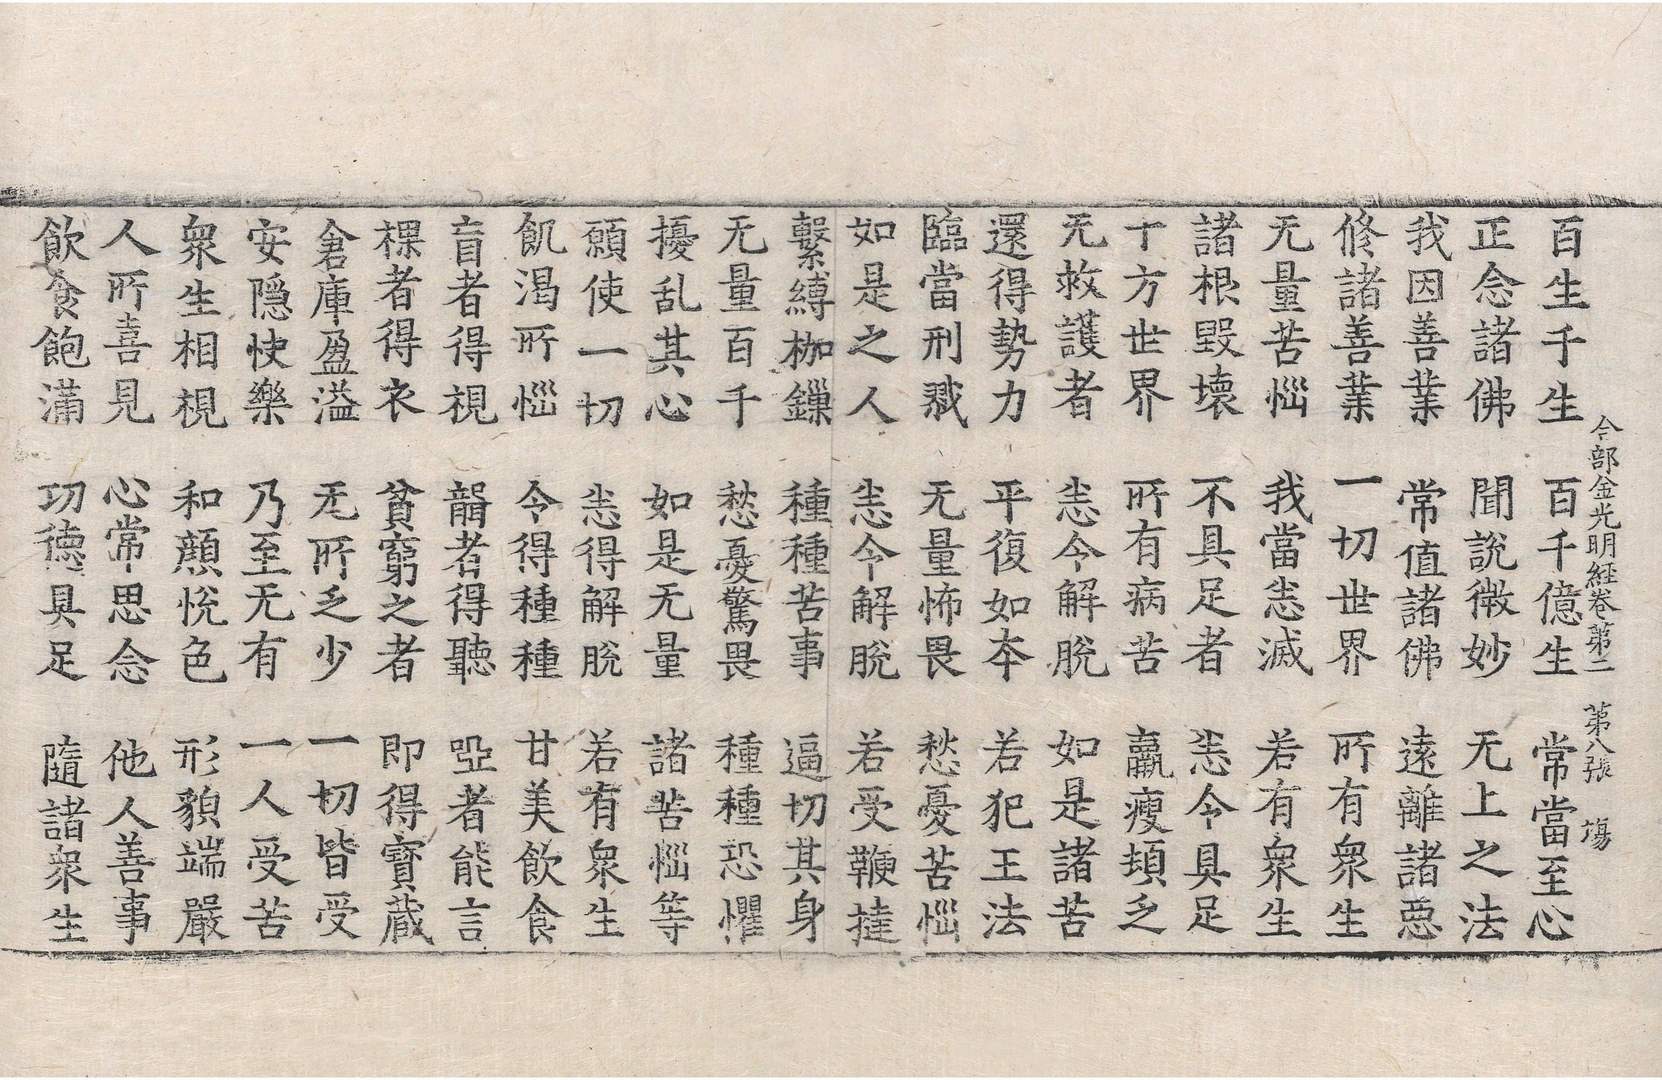 合部金光明経卷第二　第八張　塲
百生千生　百千億生　常當至心
正念諸佛　聞說微妙　无上之法
我因善業　常值諸佛　遠離諸惡
修諸善業　一切世界　所有衆生
无量苦惱　我當悉滅　若有衆生
諸根毀壞　不具足者　悉令具足
十方世界　所有病苦　羸瘦頓乏
无救護者　悉令解脫　如是諸苦
還得勢力　平復如本　若犯王法
臨當刑戮　无量怖畏　愁憂苦惱
如是之人　悉令解脫　若受鞭撻
繫縛枷鏁　種種苦事　逼切其身
无量百千　愁憂驚畏　種種恐懼
擾乱其心　如是无量　諸苦惱等
願使一切　悉得解脫　若有衆生
飢渴所惱　令得種種　甘美飲食
盲者得視　聾者得聽　啞者能言
裸者得衣　貧窮之者　即得寶藏
倉庫盈溢　无所乏少　一切皆受
安隱快樂　乃至无有　一人受苦
衆生相視　和顏悅色　形貌端嚴
人所喜見　心常思念　他人善事
飲食飽滿　功德具足　隨諸衆生